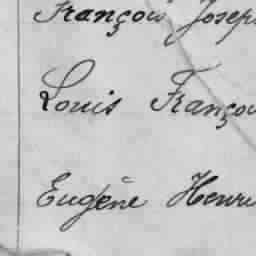 François Josep
Louis Françou
Eugène Henri